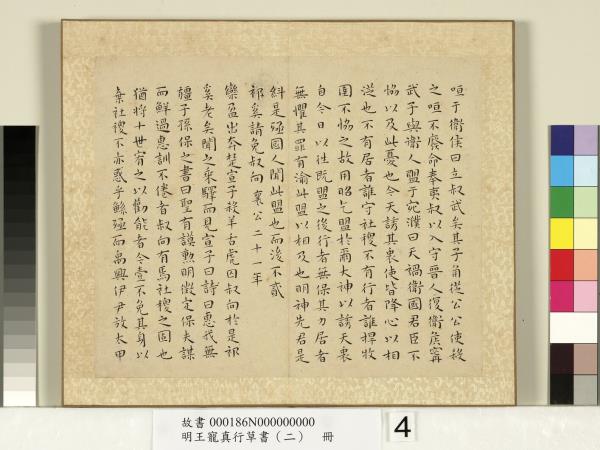 咺于衛侯曰立叔武矣其子角從公公使殺
之咺不廢命奉夷叔以入守晉人復衛侯甯
武子與衛人盟于宛濮曰天禍衛國君臣不
恊以及此憂也今天誘其衷使皆降心以相
從也不有居者誰守社稷不有行者誰捍牧
圉不恊之故用昭乞盟於爾大神以誘天衷
自今日以往既盟之後行者無保其力居者
無懼其罪有渝此盟以相及也明神先君是
糾是殛國人聞此盟也而後不貳
祁奚請免叔向 襄公二十一年
欒盈出奔楚宣子殺羊舌虎囚叔向於是祁
奚老矣聞之乘驛而見宣子曰詩曰惠我無
疆子孫保之書曰聖有謨勳明徵定保夫謀
而鮮過惠訓不倦者叔向有焉社稷之固也
猶將十世宥之以勸能者今壹不免其身以
棄社稷不亦惑乎鯀殛而禹興伊尹放太甲
故書 000186N000000000
明王寵真行草書（二） 冊
4